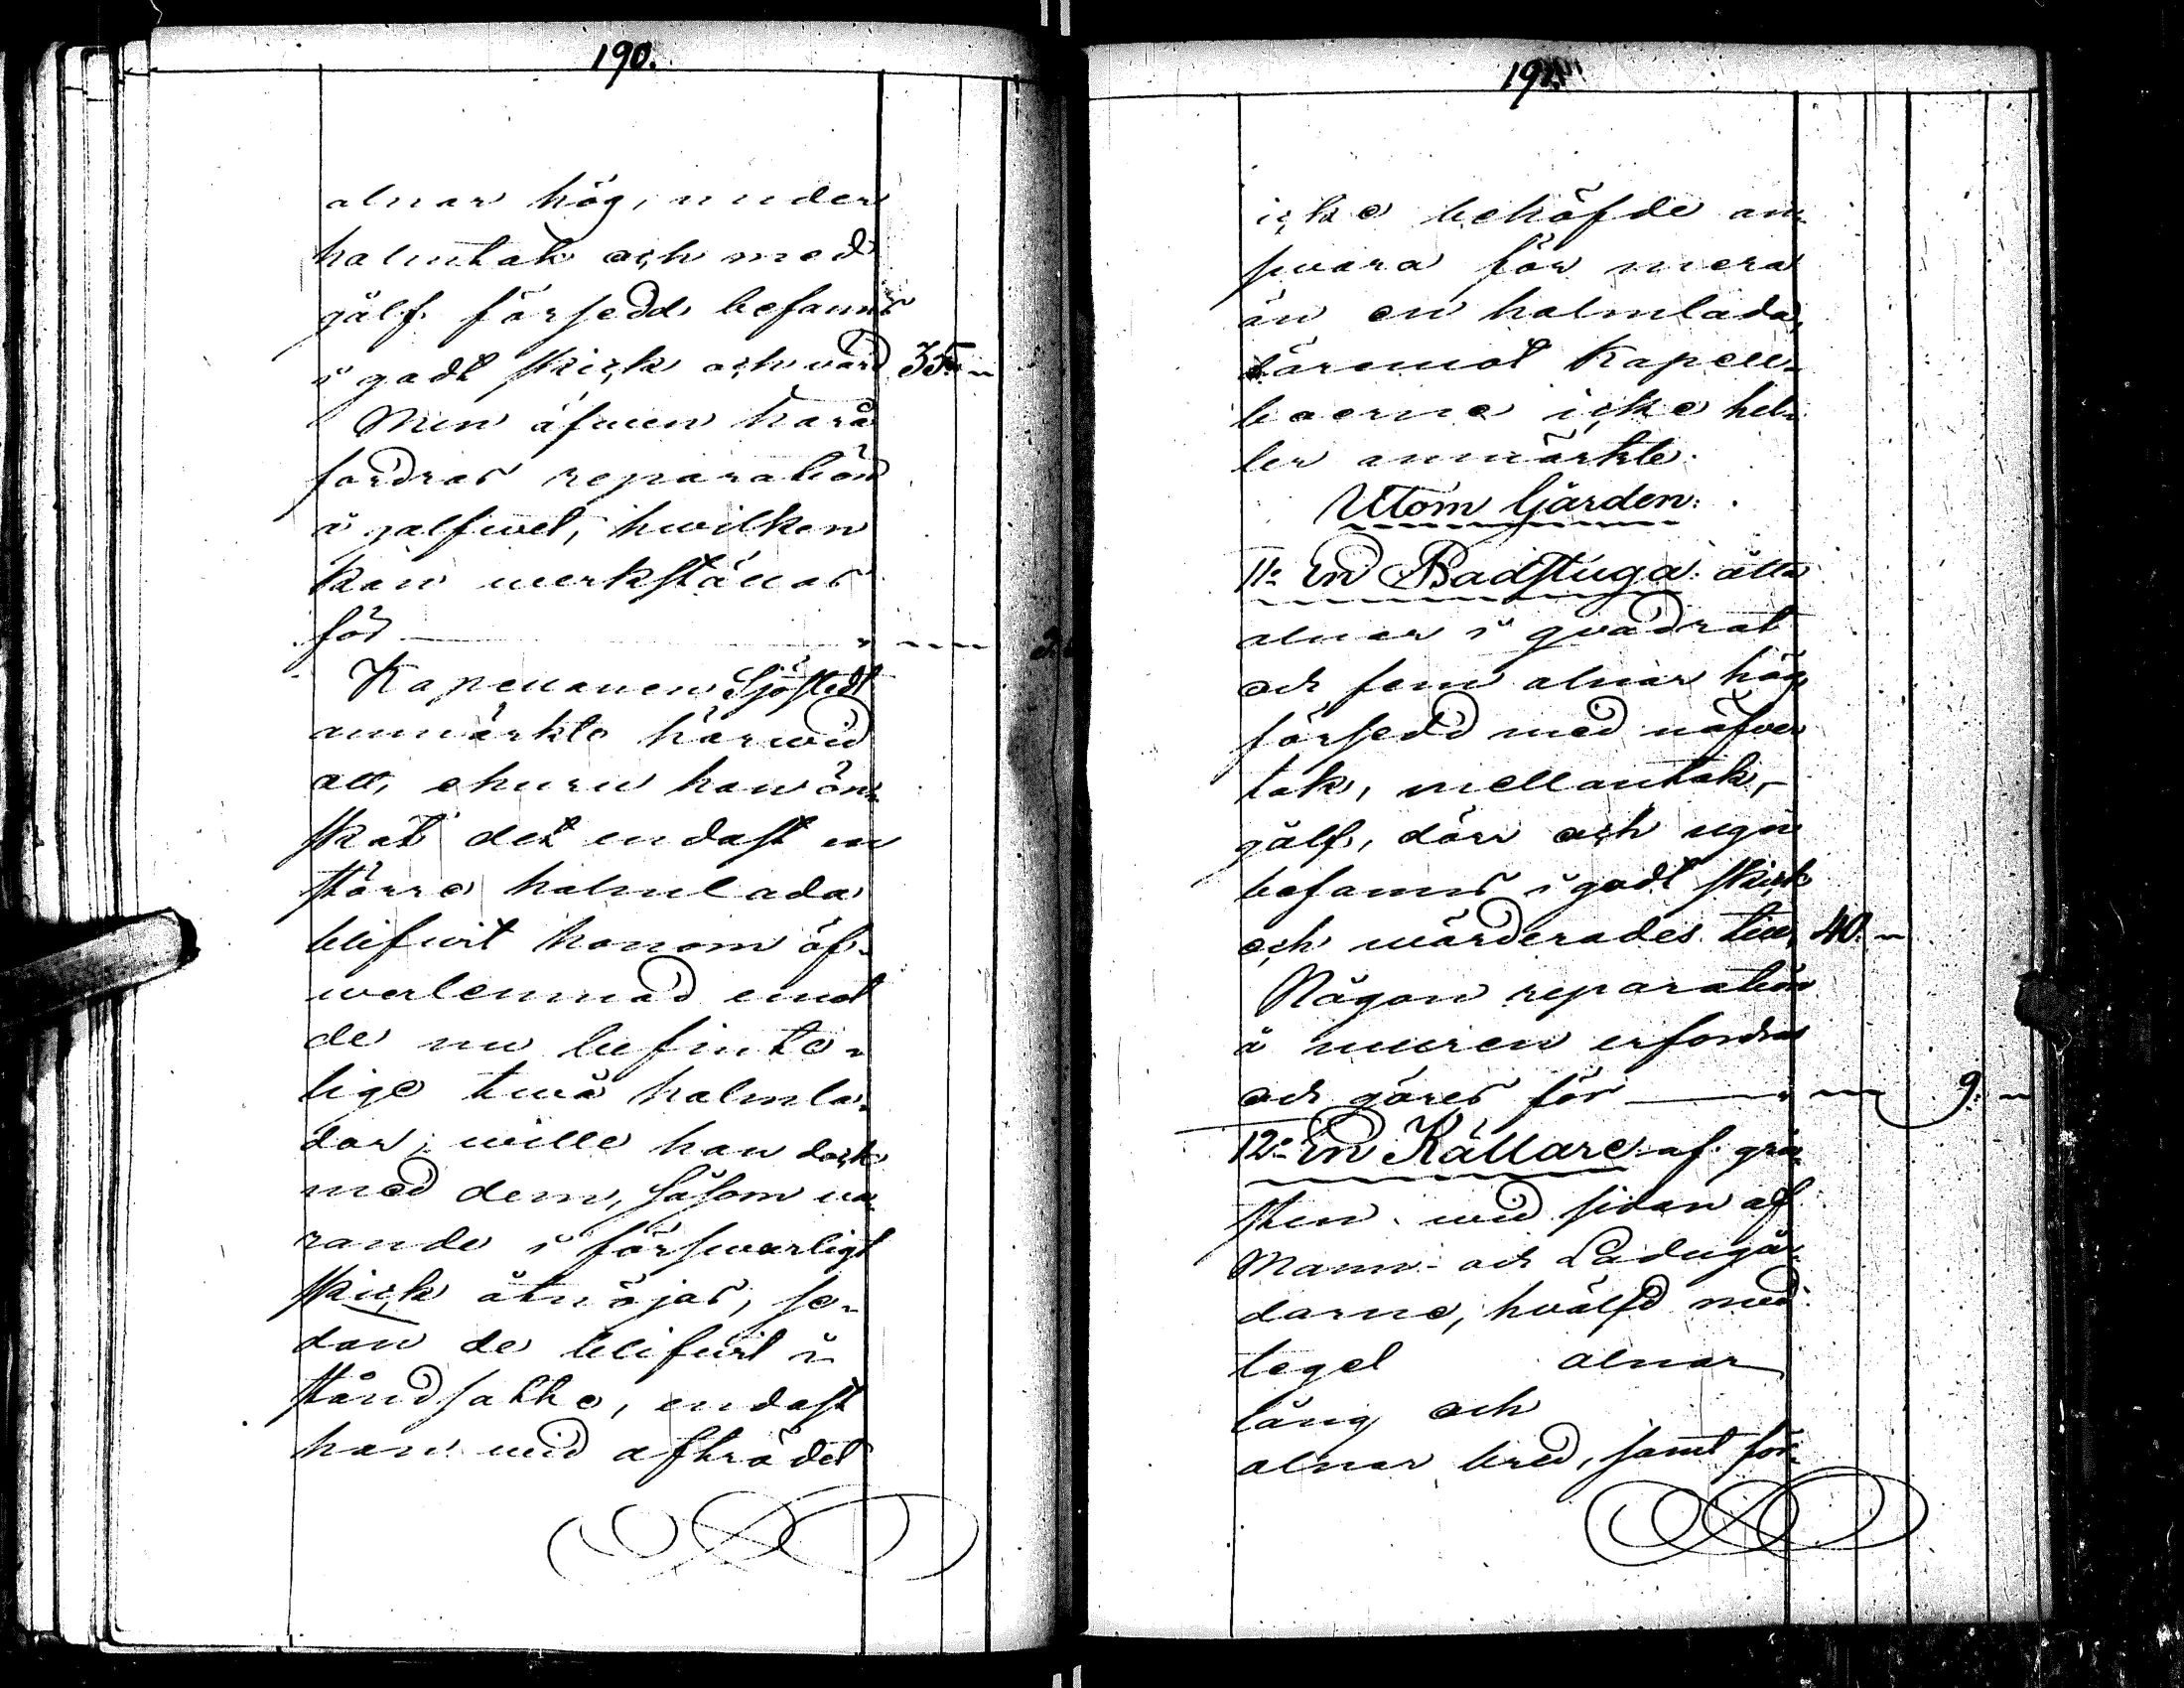 190.
alnar hög, under
halmtak och med
gålf försedd befanns
i godt skick och värd 35. "
Men äfwen härå
fordras reparation
å golfwet, hwilken
kan werkställas
för
Kapellanen Sjöstedt
anmärkte härwid
att, ehuru han ön-
skat det endast en
större halmlada
blifwit honom öf-
werlemnad emot
de nu befinte-
lige twå halmla-
dor, wille han dock
med dem, såsom wa-
rande i förswarligt
skick åtnöjas, se-
dan de blifwit i
ståndsatte, endast
han wid afträdet
191.
icke behöfde an-
swara för mera
än en halmlada,
däremot Kapell-
boerne icke hel-
ler anmärkte.
Utom Gården.
11:o En Badstuga åtta
alnar i qvadrat
och fem alnar hög
försedd med näfver
tak, mellantak,
gålf, dörr och ugn
befanns i godt skick
och wärderades till 40. "
Någon reparation
å muren erfordras
och göres för " " 9. "
12:o En Källare af grå-
sten wid sidan af
Mann- och Ladugår-
darne, hwälfd med
tegel alnar
lång och
alnar bred, samt för-